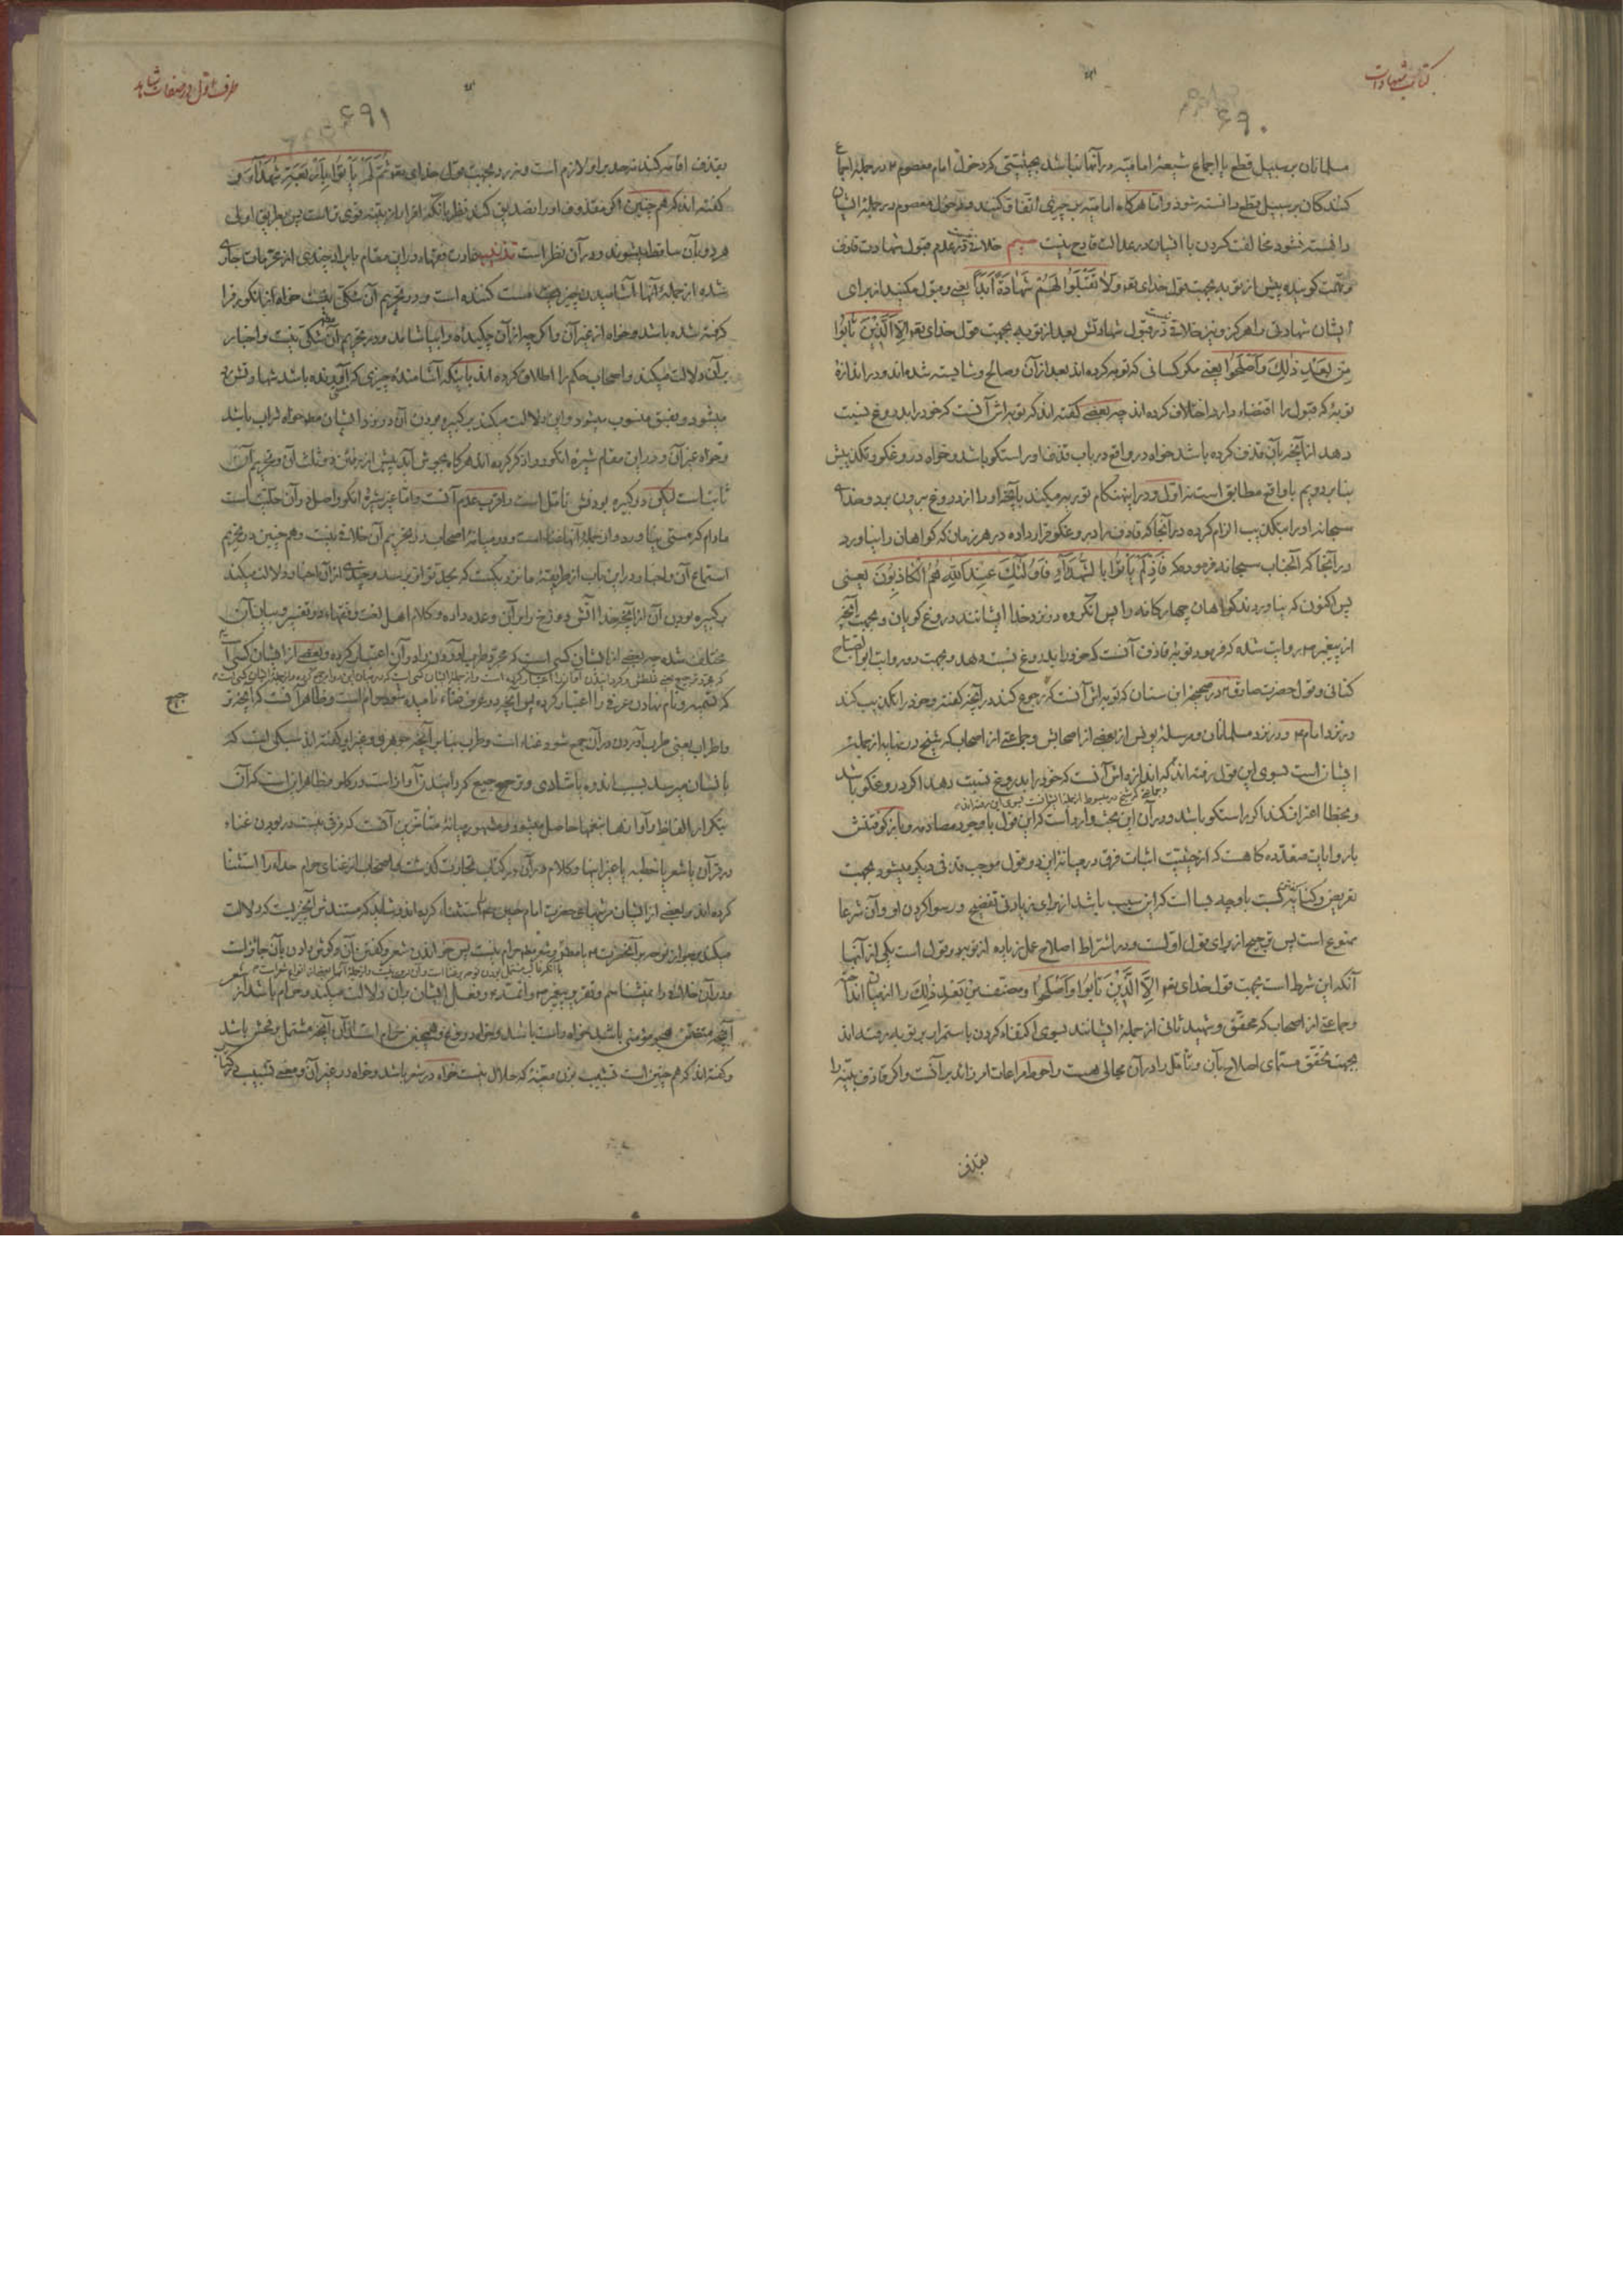 کتاب شهادات
۶۹۰
مسلمانان بر سبیل قطع یا اجماع شیعهٔ امامیه در آنها نباشد بحیثیتی که دخول امام معصوم ع در جمله اجماع
کنندگان بر سبیل قطع دانسته شود و اما هرگاه امامیه بر چیزی اتفاق کنند و دخول معصوم در جملهٔ ایشان
دانسته نشود مخالفت کردن با ایشان در عدالت قادح نیست سیم خلافی نیست در عدم قبول شهادت قاذف
و تهمت گوینده پیش از توبه بجهت قول خدای تعو وَلَا تَقْبَلُوا لَهُمْ شَهَادَةً أَبَدًا یعنی و قبول مکنید از برای
ایشان شهادتی را هرگز و نیز خلافی نیست در قبول شهادتش بعد از توبه بجهت قول خدای تعو إِلَّا الَّذِينَ تَابُوا
مِنْ بَعْدِ ذَلِكَ وَأَصْلَحُوا یعنی مگر کسانی که توبه کرده‌اند بعد از آن و صالح و شایسته شده‌اند و در اندازهٔ
توبهٔ که قبول را اقتضاء دارد اختلاف کرده‌اند چه بعضی گفته‌اند که توبه‌اش آنست که خود را بدروغ نسبت
دهد از آنچه بآن قذف کرده باشد خواه در واقع در باب قذف او راستگو باشد و خواه دروغگو و تکذیبش
بنا بر دویم با واقع مطابق است نه اول و در اینهنگام توریه میکند بآنچه او را از دروغ بیرون برد و خدای
سبحانه او را بتکذیب الزام کرده در آنجا که قاذف را دروغگو قرار داده در هر زمان که گواهان را نیاورد
در آنجا که آنجناب سبحانه فرموده که فَإِذْ لَمْ يَأْتُوا بِالشُّهَدَاءِ فَأُولَئِكَ عِنْدَ اللَّهِ هُمُ الْكَاذِبُونَ یعنی
پس اکنون که نیاوردند گواهان چهارگانه را پس آنگروه در نزد خدا ایشانند دروغ گویان و بجهت آنچه
از پیغمبر ص روایت شده که فرمود توبهٔ قاذف آنست که خود را بدروغ نسبت دهد و بجهت دو روایت ابو الصباح
کنانی و قول حضرت صادق ع در صحیحهٔ ابن سنان که توبه‌اش آنست که رجوع کند در آنچه گفته و خود را تکذیب کند
در نزد امام ع و در نزد مسلمانان و مرسلهٔ یونس از بعضی از اصحابش و جماعتی از اصحاب که شیخ در نهایه از جملهٔ
ایشان است بسوی این قول رفته‌اند که اندازه‌اش آنست که خود را بدروغ نسبت دهد اگر دروغگو باشد
و جماعتی که شیخ در مبسوط از جملهٔ ایشانست بسوی این رفته‌اند
و بخطا اعتراف کند اگر راستگو باشد و در آن این بحث وارد است که این قول با وجود مصادمه
با روایات متعدده گاهست که از حیثیت اثبات فرق در میانهٔ این دو قول موجب قذفی دیگر میشود بجهت
تعریض و کنایه گفتن با وجه بسا است که این سبب باشد از برای زیادتی تفضیح و رسوا کردن او و آن شرعا
ممنوع است پس ترجیح از برای قول اولست و در اشتراط اصلاح عمل زیاده از توبه دو قول است یکی از آنها
آنکه این شرط است بجهت قول خدای تعو إِلَّا الَّذِينَ تَابُوا وَأَصْلَحُوا و مصنف
و جماعتی از اصحاب که محقق و شهید ثانی از جملهٔ ایشانند بسوی اکتفاء کردن باستمرار بر توبه رفته‌اند
بجهت تحقق مسمای اصلاح بآن و تأمل را در آن مجالی هست و احوط مراعات امر زائد بر آنست و اگر قاذف بینه را
بقذف
طرف اول در صفات شاهد
۶۹۱
بقذف اقامه کند نه حد بر او لازم است و نه رد بجهت قول خدای تعو ثُمَّ لَمْ يَأْتُوا بِأَرْبَعَةِ شُهَدَاءَ و
گفته‌اند که هم چنین اگر مقذوف او را تصدیق کند نظر بآنکه اقرار از بینه قوی‌تر است پس بطریق اولی
هر دو بآن ساقط میشوند و در آن نظر است تذنیب عادت فقهاء در این مقام بایراد چندی از محرمات جاری
شده از جملهٔ آنها آشامیدن چیز مست کننده است و در تحریم آن شکی نیست خواه از انگور فرا
گرفته شده باشد و خواه از غیر آن و اگر چه از آن چکیدهٔ را بیاشامد و در تحریم آن شکی نیست و اخبار
بر آن دلالت میکند و اصحاب حکم را اطلاق کرده‌اند باینکه آشامندهٔ چیزی که باشد شهادتش رد
میشود و بفسق منسوب میشود و این دلالت میکند بر کبیره بودن آن در نزد ایشان خواه شراب باشد
و خواه غیر آن و در این مقام شیرهٔ انگور را ذکر کرده‌اند هرگاه بجوش آید پیش از رفتن دو ثلث آن و تحریم آن
ثابت است لیکن در کبیره بودنش تأمل است و اقرب عدم آنست و اما غیر شیرهٔ انگور اصل در آن حلیت است
مادام که مستی نیاورد و از جملهٔ آنها غناء است و در میانهٔ اصحاب در تحریم آن خلافی نیست و هم چنین در تحریم
استماع آن و اخبار در این باب از طریقهٔ ما نزدیکست که بحد تواتر برسد و چندی از آن اخبار دلالت میکند
بر کبیره بودن آن از آنچه خدا آتش دوزخ را بر آن وعده داده و کلام اهل لغت و فقهاء در تفسیر و بیان آن
مختلف شده چه بعضی از ایشان کسی است که مجرد طرب آوردن را در آن اعتبار کرده و بعضی از ایشان کسی است
که تسمیه و نام نهادن عرف را اعتبار کرده پس آنچه در عرف غناء نامیده شود حرام است و ظاهر آنست که آنچه
و اطراب یعنی طرب آوردن در آن جمع شود غناء است و طرب بنا بر آنچه جوهری و غیر او گفته‌اند سبکی است که
بانسان میرسد بسبب اندوه یا شادی و ترجیع گردانیدن آواز است در گلو و ظاهر این است که آن
بتکرار الفاظ و آوازها بنغمها حاصل میشود و مشهور میانهٔ متأخرین آنست که فرقی نیست در بودن غناء
در قرآن یا شعر یا خطبه یا غیر اینها و کلام در آن در کتاب تجارت گذشت و اصحاب از غنای حرام حداء را استثنا
کرده‌اند و بعضی از ایشان مرثیهای حضرت امام حسین ع را استثناء کرده‌اند و شاید که مستندش آنچیزیست که دلالت
میکند بر جواز نوحه بر آنحضرت ع و شعر حرام نیست پس خواندن شعر و گفتن آن و گوش دادن بآن جائز است
و در آن خلافی را نمیشناسم و تقریر پیغمبر ص و ائمه ع و فعل ایشان بر آن دلالت میکند و حرام باشد از
آنچه متضمن هجو مؤمنی باشد خواه راست باشد و خواه دروغ و همچنین حرام است از آن آنچه مشتمل بر فحش باشد
و گفته‌اند که هم چنین است تشبیب بزن معینه که حلال نیست خواه در شعر باشد و خواه در غیر آن و معنی تشبیب